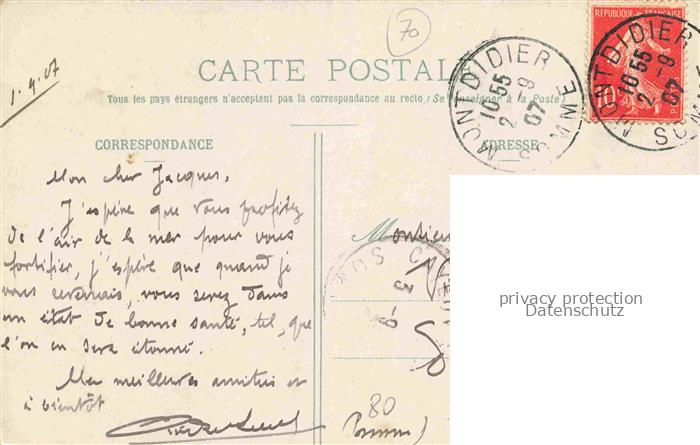 70
1.9.07
CARTE POSTALE
Tous les pays étrangers n'acceptent pas la correspondance au recto (Se renseigner à la Poste)
CORRESPONDANCE
ADRESSE
REPUBLIQUE FRANÇAISE
10
MONTDIDIER
10 55
2 -9
07
SOMME
MONTDIDIER
10 55
2 -9
07
SOMME
Mon cher Jacques,
J'espère que vous profitez
de l'air de la mer pour vous
fortifier, j'espère que quand je
vous reverrais, vous serez dans
un état de bonne santé, tel, que
l'on en sera étonné.
Mes meilleures amitiés et
à bientôt
Monsieur
3 -9
80
privacy protection
Datenschutz